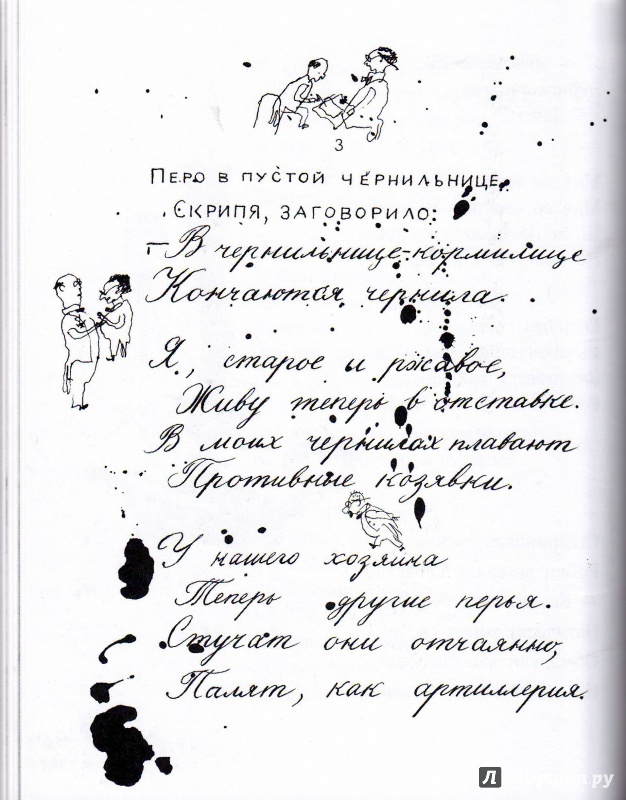 3
ПЕРО В ПУСТОЙ ЧЕРНИЛЬНИЦЕ,
СКРИПЯ, ЗАГОВОРИЛО:
– В чернильнице-кормилице
Кончаются чернила.
Я, старое и ржавое,
Живу теперь в отставке.
В моих чернилах плавают
Противные козявки.
У нашего хозяина
Теперь другие перья.
Стучат они отчаянно,
Палят, как артиллерия.
Лабиринт.ру